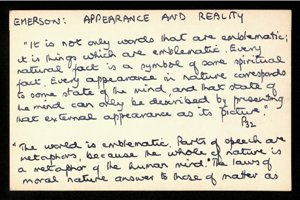 EMERSON: APPEARANCE AND REALITY
"It is not only words that are emblematic;
it is things which are emblematic. Every
natural fact is a symbol of some spiritual
fact. Every appearance in nature corresponds
to some state of the mind, and that state of
the mind can only be described by presenting
that external appearance as its picture."
P32
"The world is emblematic. Parts of speech are
metaphors, because the whole of nature is
a metaphor of the human mind. The laws of
moral nature answer to those of matter as